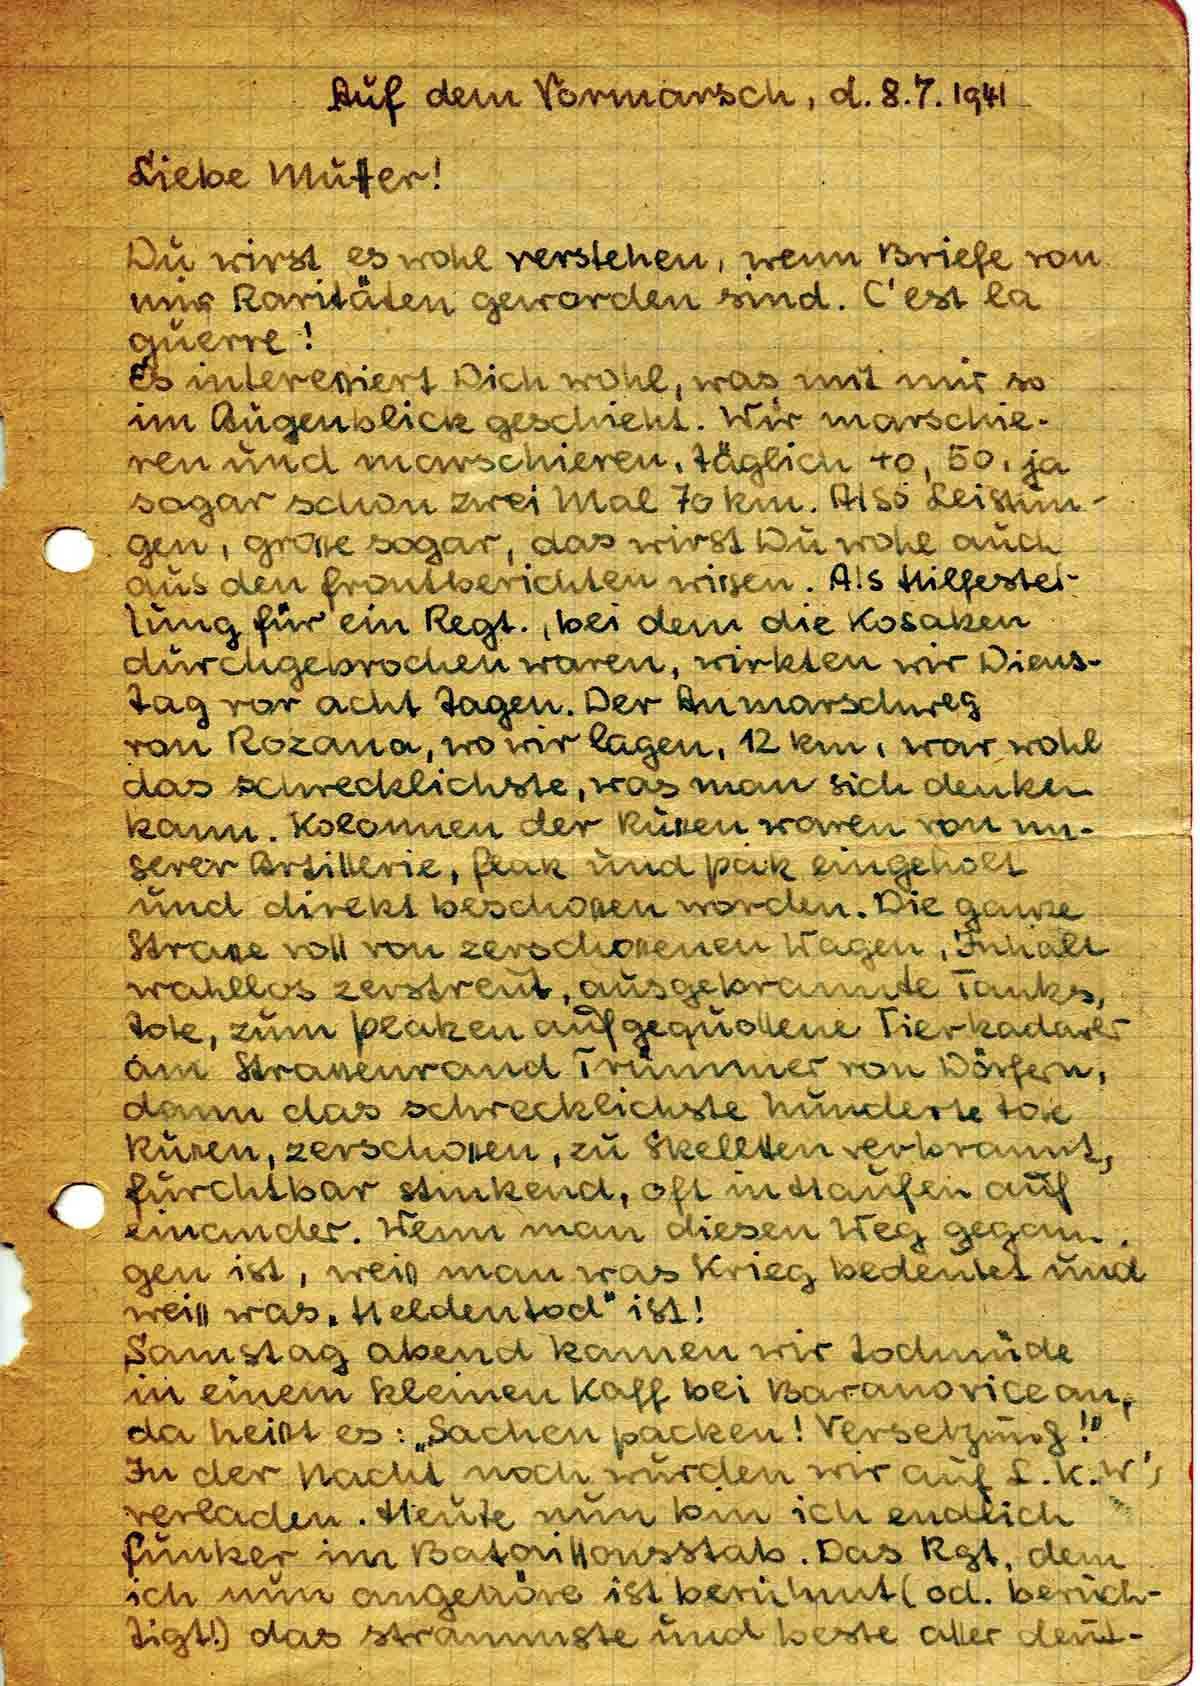 Auf dem Vormarsch, d. 8.7.1941
Liebe Mutter!
Du wirst es wohl verstehen, wenn Briefe von
mir Raritäten geworden sind. C'est la
guerre!
Es interessiert Dich wohl, was mit mir so
im Augenblick geschieht. Wir marschie-
ren und marschieren, täglich 40, 50, ja
sogar schon zwei Mal 70 km. Also Leistun-
gen, grosse sogar, das wirst Du wohl auch
aus den Frontberichten wissen. Als Hilfestel-
lung für ein Regt., bei dem die Kosaken
durchgebrochen waren, wirkten wir Diens-
tag vor acht Tagen. Der Anmarschweg
von Rozana, wo wir lagen, 12 km, war wohl
das schrecklichste, was man sich denken
kann. Kolonnen der Russen waren von un-
serer Artillerie, Flak und Pak eingeholt
und direkt beschossen worden. Die ganze
Strasse voll von zerschossenen Wagen, Inhalt
wahllos zerstreut, ausgebrannte Tanks,
tote, zum plazen aufgequollene Tierkadaver
am Strassenrand Trümmer von Dörfern,
dann das schrecklichste hunderte tote
Russen, zerschossen, zu Skelltten verbrannt,
furchtbar stinkend, oft in Haufen auf
einander. Wenn man diesen Weg gegan-
gen ist, weiss man was Krieg bedeutet und
weiss was „Heldentod" ist!
Samstag abend kamen wir todmüde
in einem kleinen Kaff bei Baranovice an,
da heisst es: „Sachen packen! Versetzung!"
In der Nacht noch wurden wir auf L.K.W's
verladen. Heute nun bin ich endlich
Funker im Bataillonsstab. Das Rgt, dem
ich nun angehöre ist berühmt (od. berüch-
tigt!) das strammste und beste aller deut-